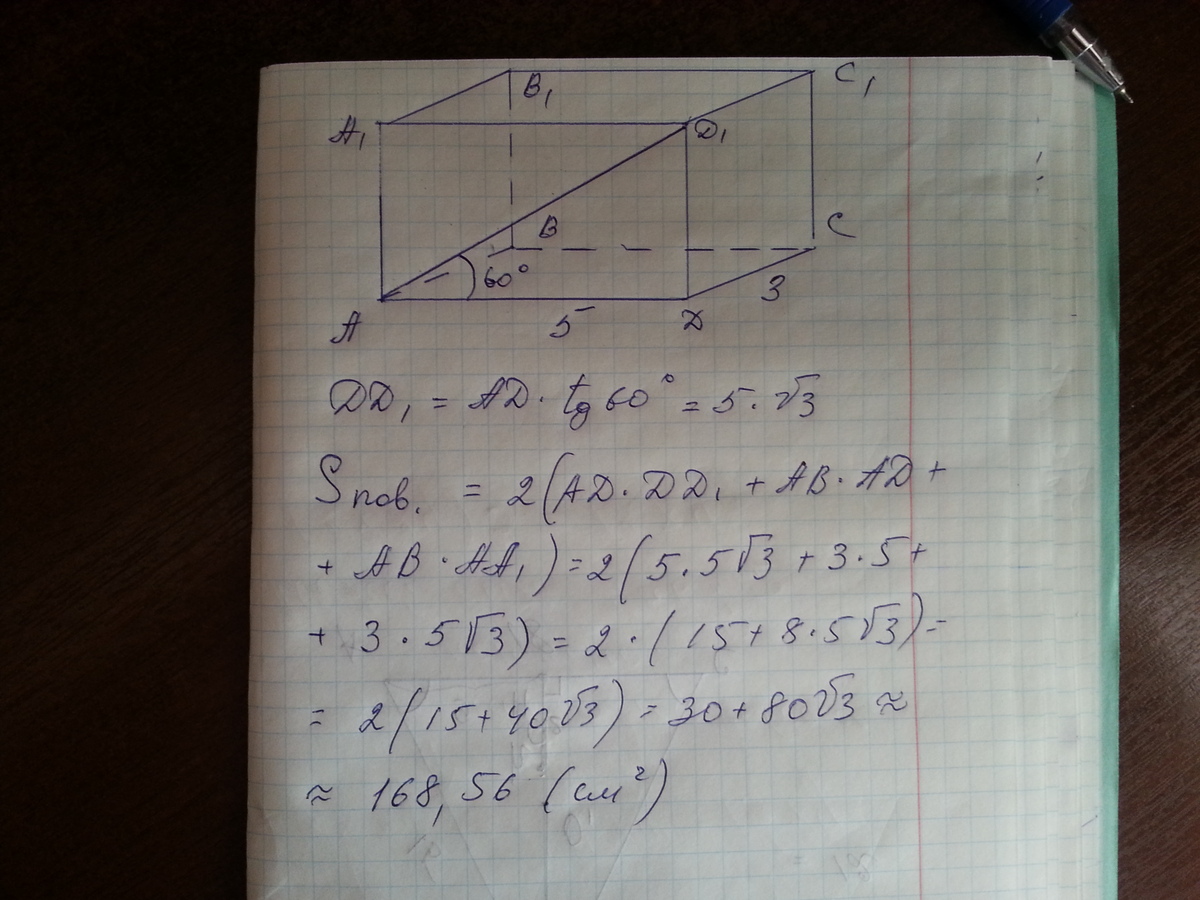 B₁ C₁
A₁ D₁
B C
60° 3
A 5 D
DD₁ = AD · tg 60° = 5 · √3
Sпов. = 2(AD · DD₁ + AB · AD +
+ AB · AA₁) = 2(5 · 5√3 + 3 · 5 +
+ 3 · 5√3) = 2 · (15 + 8 · 5√3) =
= 2(15 + 40√3) = 30 + 80√3 ≈
≈ 168,56 (см²)